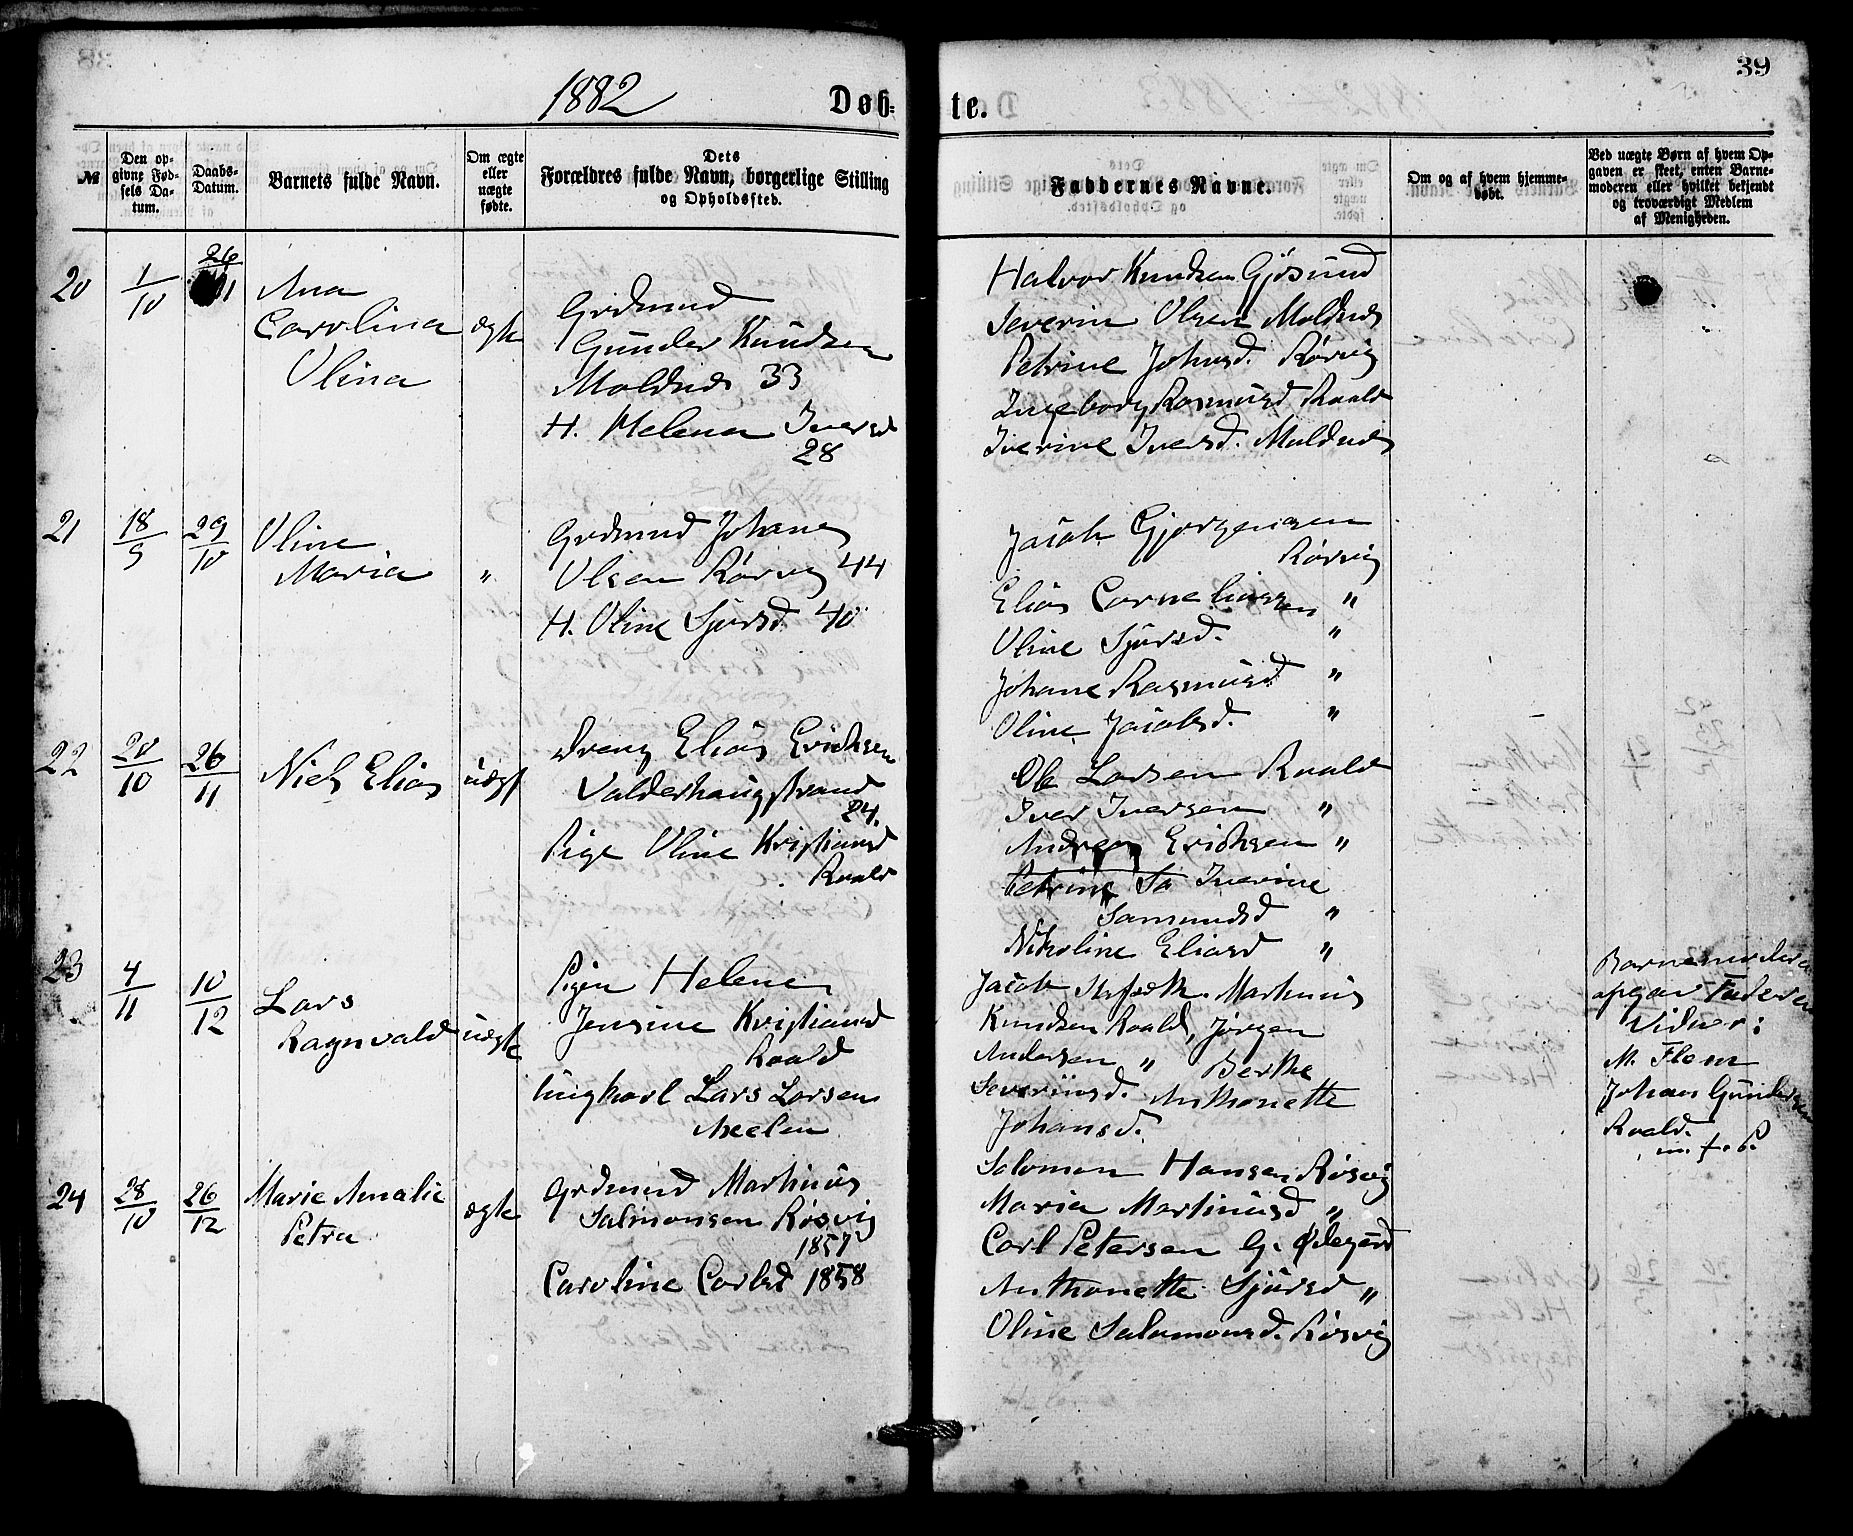 1882
Døb-
te.
39
№
Den op-
givne Fød-
sels Da-
tum.
Daabs-
Datum.
Barnets fulde Navn.
Om ægte
eller
uægte
fødte.
Dets
Forældres fulde Navn, borgerlige Stilling
og Opholdssted.
Faddernes Navne.
Om og af hvem hjemme-
døbt.
Ved uægte Børn af hvem Op-
gaven er skeet, enten Barne-
moderen eller hvilket bekjendt
og troværdigt Medlem
af Menigheden.
20
1/10
26/11
Ana
Carolina
Olina
ægte
Grdmand
Gunder Knudsen
Moldnæs 33
H. Helena Iversd
28
Halvor Knudsen Gjøsund
Severin Olsen Moldnæs
Petrine Johnsd. Rørvig
Ingeborg Rasmusd Roald
Iverine Iversd. Moldnæs
21
18/9
29/10
Oline
Maria
"
Grdmand Johanes
Olsen Rørvig 44
H. Oline Sjursd. 40
Jacob Gjørgensen
Rørvig
Elias Corneliussen "
Oline Sjursd. "
Johane Rasmusd. "
Oline Jacobsd. "
22
20/10
26/11
Niels Elias
uægt
Dreng Elias Erichsen
Valderhaugstrand
24.
Pige Oline Kristiansd
Roald
Ole Larsen Roald
Iver Iversen "
Andreas Erichsen "
Petrine Iverine
Samundsd "
Nikoline Eliasd "
23
4/11
10/12
Lars
Ragnvald
uægte
Pigen Helene
Jensine Kristiansd
Roald
Ungkarl Lars Larsen
Alnes
Jacob Martinus
Knudsen Roald, Jørgen
Andersen " Berthe
Severinsd. Anthonette
Johansd.
Barnemoderen
opgav Faderen
Vidner:
M. Flem
Johan Gundersen
Roald.
m. f. P.
24
28/10
26/12
Marie Amalie
Petra
ægte
Grdmand Martinus
Salmonsen Rørvig
1857
Caroline Carlsd 1858
Salomon Hansen Rørvig
Maria Martinusd "
Carl Petersen G. Ødegård
Anthonette Sjursd "
Oline Salomonsd. Rørvig